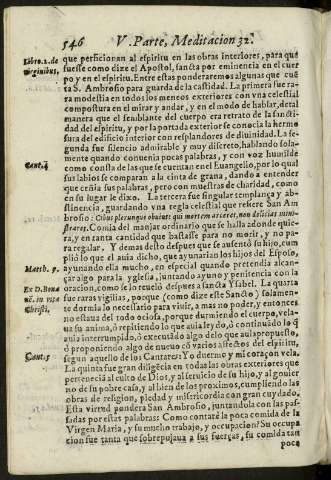 546 V. Parte, Meditacion 32.
Libro. 2. de
virginibus,
que perficionan al espiritu en las obras interiores, para qu
fuesse como dize el Apostol, sancta por eminencia en el cuer
po y en el espiritu. Entre estas ponderaremos algunas que cuẽ
ta S. Ambrosio para guarda de la castidad. La primera fue ra
ra modestia en todos los meneos exteriores con vna celestial
compostura en el mirar y andar, y en el modo de hablar, detal
manera que el semblante del cuerpo era retrato de la sancti-
dad del espiritu, y por la portada exterior se conocia la hermo
sura del edificio interior con resplandores de diuinidad. La se-
gunda fue silencio admirable y muy discreto, hablando sola-
mente quando conuenia pocas palabras, y con voz humilde
Cant. 4
como consta de las que se cuentan en el Euangelio, por lo qual
sus labios se comparan a la cinta de grana, dando a entender
que ceñia sus palabras, pero con muestras de charidad, como
en su lugar se dixo. La tercera fue singular templança y abs-
tinencia, guardando vna regla celestial que refiere San Am-
brosio: Cibus plerunque obuius: qui mortem arceret, non delicias mini-
strares. Comia del manjar ordinario que se halla adonde quie-
ra, y en tanta cantidad que bastasse para no morir, y no pa-
ra regalar. Y demas desto despues que se ausentó su hijo, cum
plió lo que el auia dicho, que ayunarian los hijos del Esposo,
Matth. 9.
ayunando ella mucho, en especial quando pretendia alcan-
çar algo para la yglesia, juntando ayuno y penitencia con la
Ex D. Bona
uẽ. in vita
Christi,
oracion, como se lo reueló despues a sancta Ysabel. La quarta
fue raras vigilias, porque (como dize este Sancto) solamen-
te dormia lo necessario para viuir, a mas no poder, y entonces
no estaua del todo ociosa, porque durmiendo el cuerpo, vela-
ua su anima, ó repitiendo lo que auia leydo, ó continuado lo q̃
auia interrumpido, ó executado algo delo que auia propuesto,
ó proponiendo algo de nueuo cõ varios afectos del espiritu,
Cant. 5
segun aquello de los Cantares: Yo duermo y mi coraçon vela.
La quinta fue gran diligẽcia en todas las obras exteriores que
perteneciã al culto de Dios, y al seruicio de su hijo, y al gouier
no de su pobre casa, y al bien de los proximos, cumpliendo las
obras de religion, piedad y misericordia con gran cuydado.
Esta virtud pondera San Ambrosio, juntandola con las pas-
sadas por estas palabras: Como contaré la poca comida de la
Virgen Maria, y su mucho trabajo, y occupacion? Su occupa
cion fue tanta que sobrepujaua a sus fuerças, su comida tan
poca